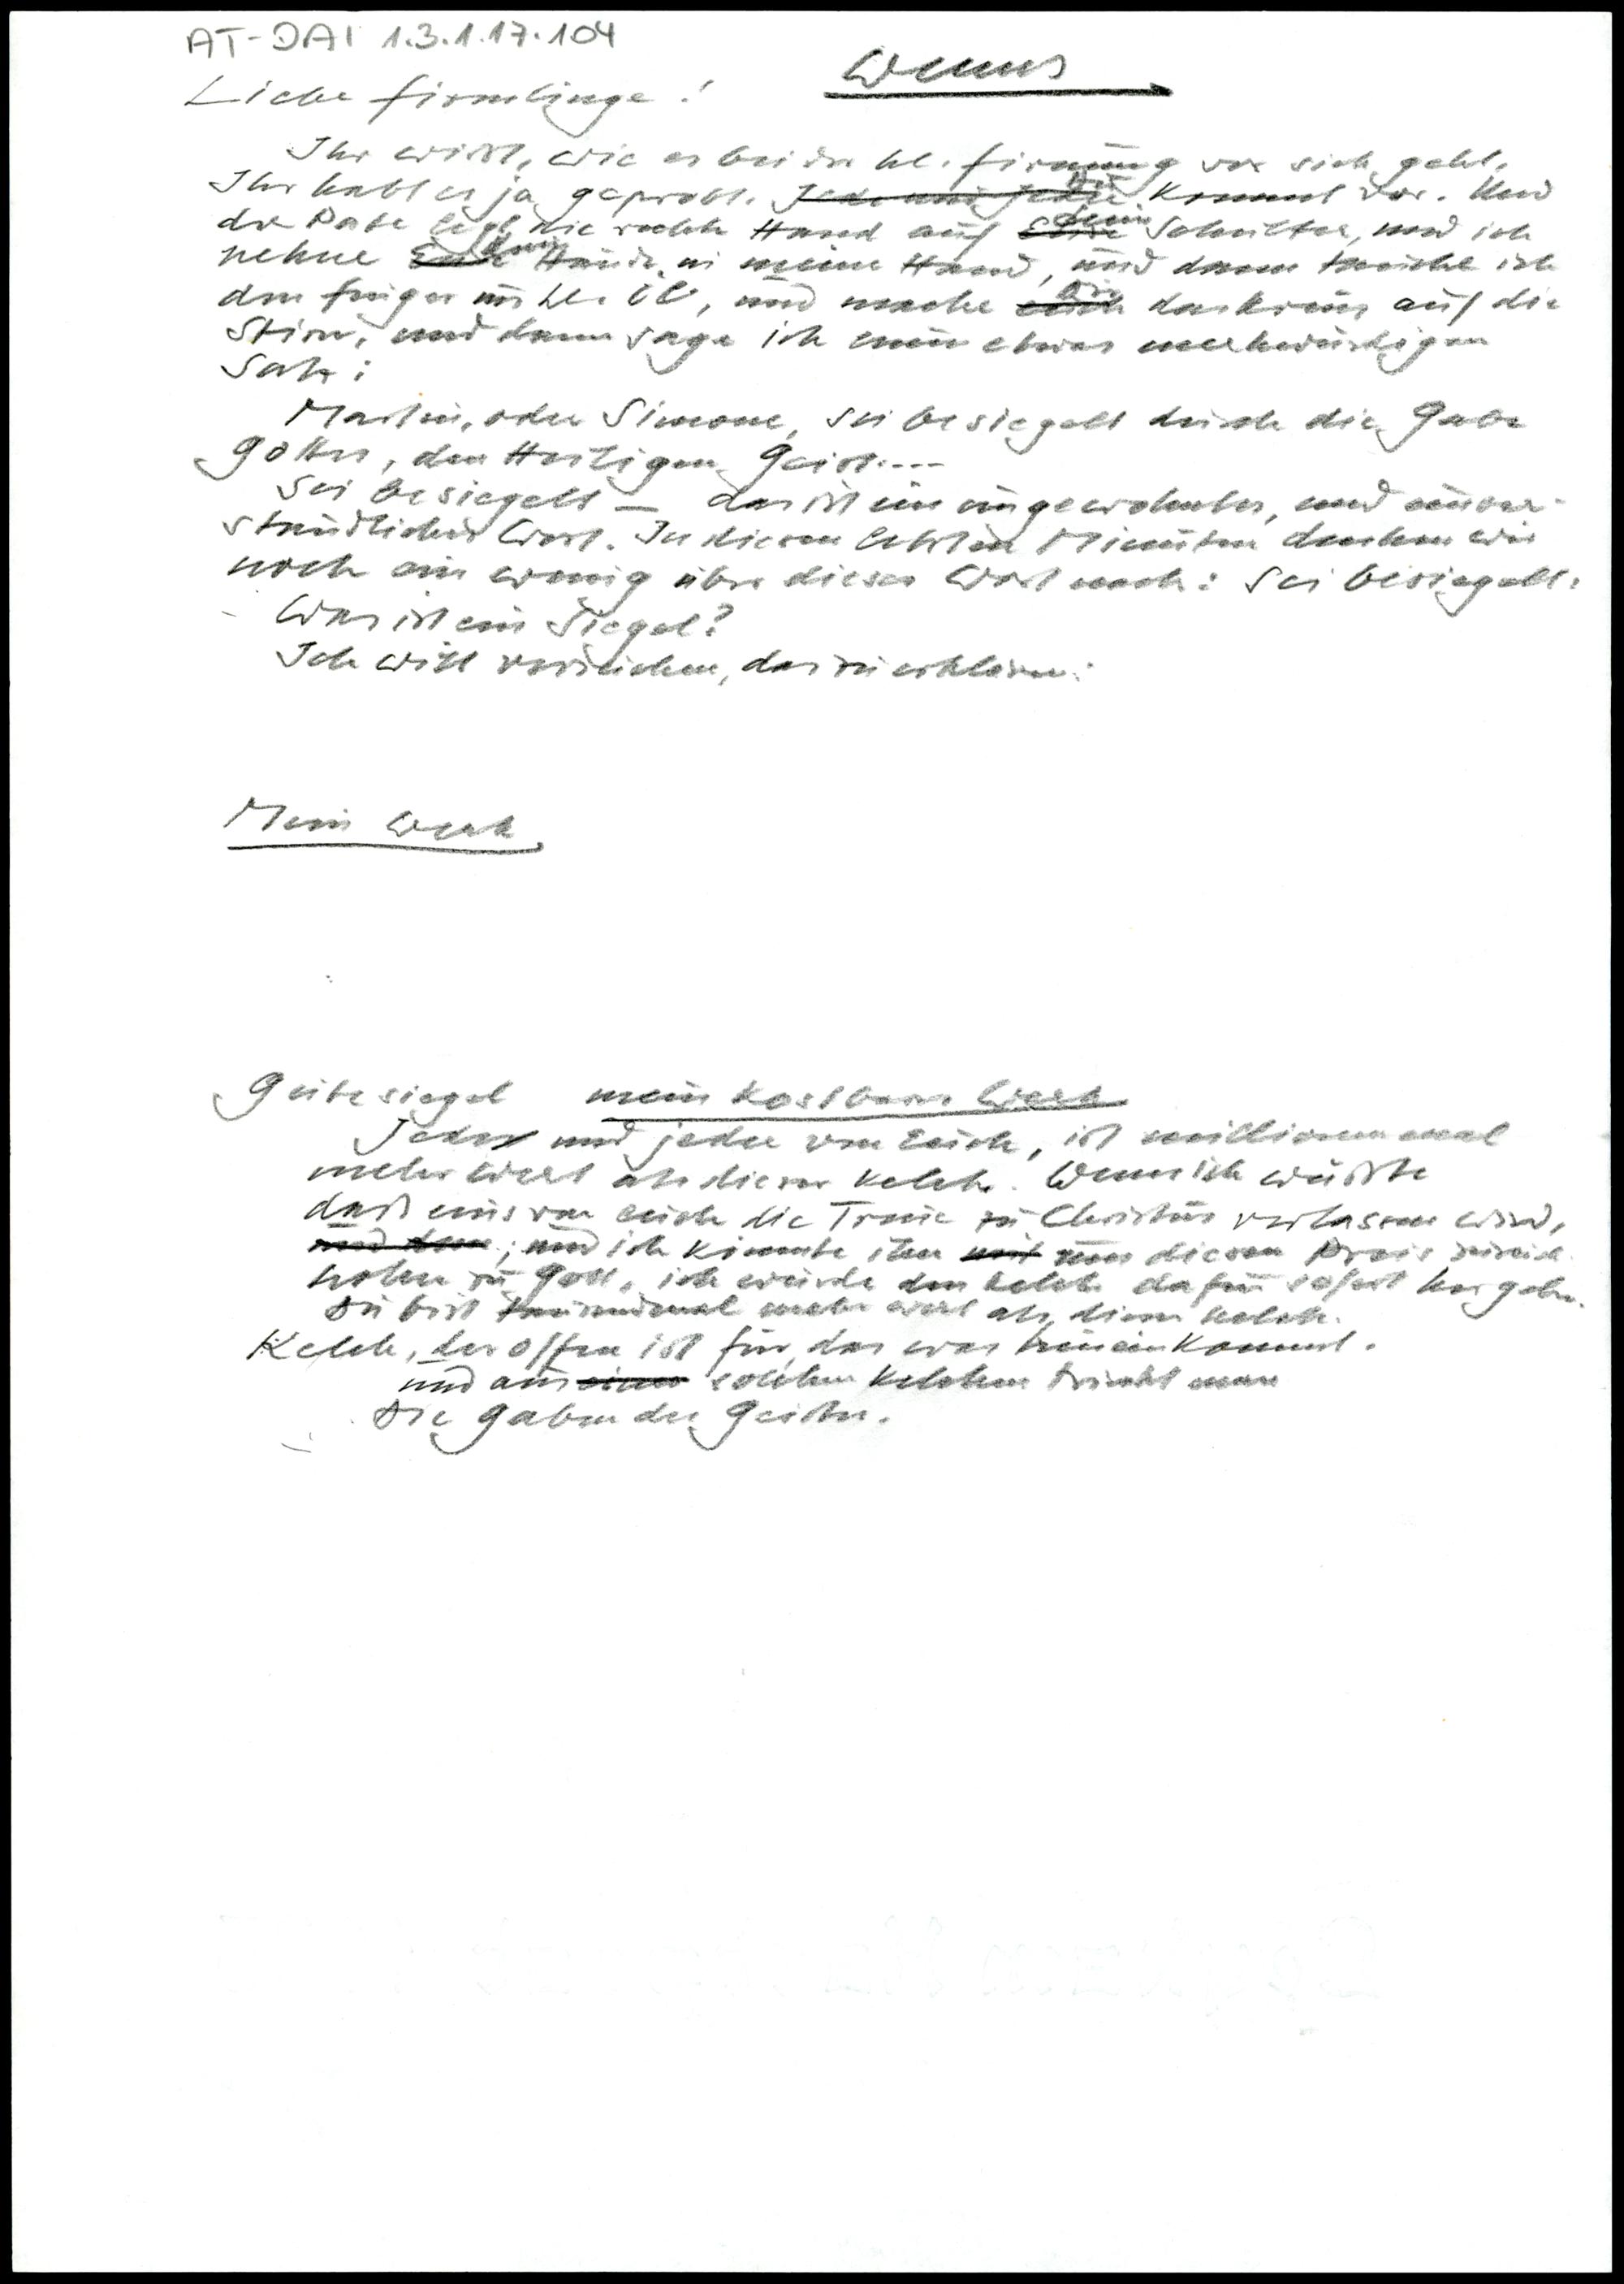 AT-DAI 1.3.1.17.104
Wenns
Liebe Firmlinge!
Ihr wißt, wie es bei der hl. Firmung vor sich geht,
Ihr habt es ja geprobt. Jeder und jede Du kommst vor. Und
der Pate legt die rechte Hand auf Eure deine Schulter, und ich
nehme Eure deine Hände in meine Hand, und dann tauche ich
den Finger ins hl. Öl, und mache euch dir das Kreuz auf die
Stirn, und dann sage ich einen etwas merkwürdigen
Satz:
Martin, oder Simone, sei besiegelt durch die Gabe
Gottes, den Heiligen Geist....
Sei besiegelt – das ist ein ungewohntes, und unver-
ständliches Wort. In diesen letzten Minuten denken wir
noch ein wenig über dieses Wort nach: Sei besiegelt.
Was ist ein Siegel?
Ich will versuchen, das zu erklären:
Mein Werk
Gütesiegel mein kostbares Werk
Jeder und jede von Euch, ist millionenmal
mehr wert als dieser Kelch. Wenn ich wüßte
daß eins von euch die Treue zu Christus verlassen wird,
und dann; und ich könnte ihn mit um diesen Preis zurück
holen zu Gott, ich würde den Kelch dafür sofort hergeben.
Du bist tausendmal mehr wert als dieser Kelch.
Kelch, der offen ist für das was hineinkommt.
und aus einem solchen Kelchen trinkt man
Die Gaben des Geistes.